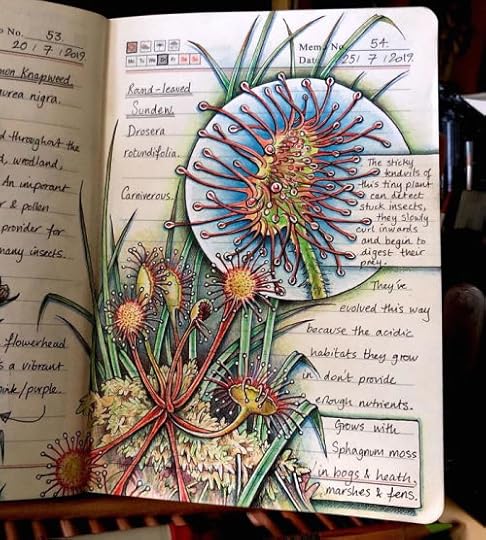 No. 53.
20/7/2019
mon Knapweed.
urea nigra.
d throughout the
d, woodland,
An important
r & pollen
provider for
many insects.
flowerhead
s a vibrant
pink/purple.
Memo No. 54.
Mo Tu We Th Fr Sa Su
Date 25/7/2019.
Round-leaved
Sundew.
Drosera
rotundifolia.
Carniverous.
The sticky
tendrils of
this tiny plant
can detect
stuck insects,
they slowly
curl inwards
and begin to
digest their
prey.
They've
evolved this way
because the acidic
habitats they grow
in don't provide
enough nutrients.
Grows with
Sphagnum moss
in bogs & heath,
marshes & fens.